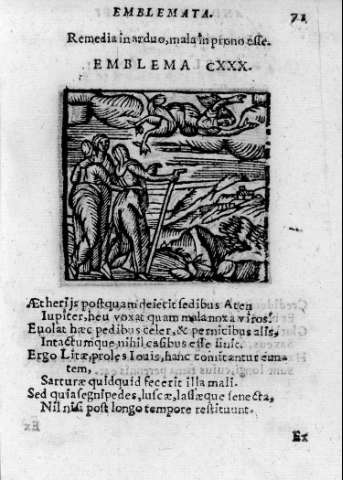 EMBLEMATA. 71
Remedia in arduo, mala in prono esse.
EMBLEMA CXXX.
Ætherijs postquam deiecit sedibus Aten
Iupiter, heu vexat quam mala noxa viros!
Euolat hæc pedibus celer, & pernicibus alis,
Intactumque nihil casibus esse sinit.
Ergo Litæ, proles Iouis, hanc comitantur eun-
tem,
Sarturæ quidquid fecerit illa mali.
Sed quia segnipedes, luscæ, lassæque senecta,
Nil nisi post longo tempore restituunt.
Ex